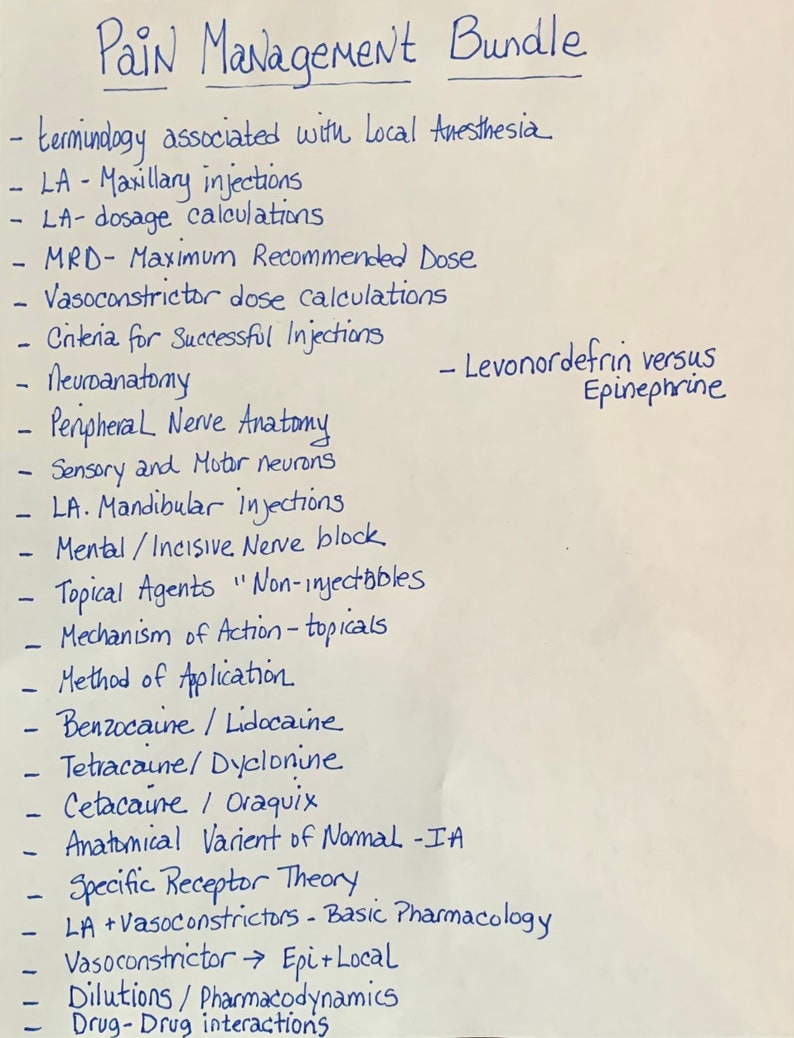 Pain Management Bundle
- terminology associated with Local Anesthesia
- LA - Maxillary injections
- LA- dosage calculations
- MRD- Maximum Recommended Dose
- Vasoconstrictor dose calculations
- Criteria for Successful Injections
- Neuroanatomy
- Levonordefrin versus
Epinephrine
- Peripheral Nerve Anatomy
- Sensory and Motor neurons
- LA. Mandibular injections
- Mental / Incisive Nerve block
- Topical Agents "Non-injectables
- Mechanism of Action - topicals
- Method of Application
- Benzocaine / Lidocaine
- Tetracaine / Dyclonine
- Cetacaine / Oraquix
- Anatomical Varient of Normal - IA
- Specific Receptor Theory
- LA + Vasoconstrictors - Basic Pharmacology
- Vasoconstrictor → Epi + Local
- Dilutions / Pharmacodynamics
- Drug - Drug interactions